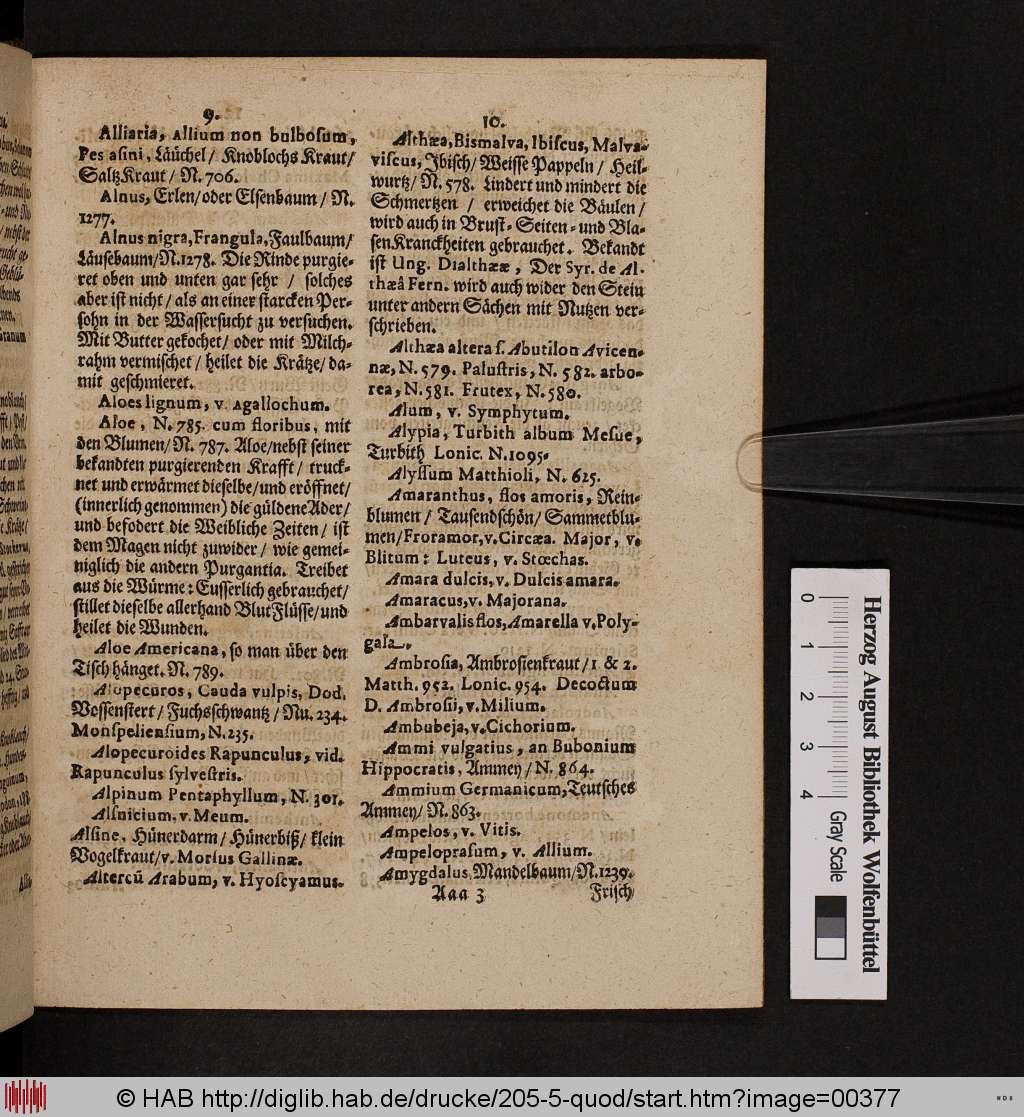 9.
Alliaria, Allium non bulbosum,
Pes asini, Läüchel/ Knoblochs Kraut/
Saltz Kraut / N. 706.
Alnus, Erlen/ oder Elsenbaum / N.
1277.
Alnus nigra, Frangula, Faulbaum/
Läusebaum/ N. 1278. Die Rinde purgie-
ret oben und unten gar sehr / solches
aber ist nicht / als an einer starcken Per-
sohn in der Wassersucht zu versuchen.
Mit Butter gekochet/ oder mit Milch-
rahm vermischet / heilet die Krätze/ da-
mit geschmieret.
Aloes lignum, v. Agallochum.
Aloe, N. 785. cum floribus, mit
den Blumen/ N. 787. Aloe/ nebst seiner
bekandten purgierenden Krafft / truck-
net und erwärmet dieselbe/ und eröffnet/
(innerlich genommen) die güldene Ader/
und befodert die Weibliche Zeiten / ist
dem Magen nicht zuwider / wie gemei-
niglich die andern Purgantia. Treibet
aus die Würme: Eusserlich gebrauchet/
stillet dieselbe allerhand BlutFlüsse/ und
heilet die Wunden.
Aloe Americana, so man über den
Tisch hänget. N. 789.
Alopecuros, Cauda vulpis, Dod.
Vossenstert / Fuchsschwantz / Nu. 234.
Monspeliensium, N. 235.
Alopecuroides Rapunculus, vid.
Rapunculus sylvestris.
Alpinum Pentaphyllum, N. 301.
Alsnicium, v. Meum.
Alsine, Hünerdarm/ Hünerbiß/ klein
Vogelkraut/ v. Morsus Gallinæ.
Altercū Arabum, v. Hyoscyamus.
10.
Althæa, Bismalva, Ibiscus, Malva-
viscus, Ibisch/ Weisse Pappeln / Heil-
wurtz/ N. 578. Lindert und mindert die
Schmertzen / erweichet die Bäulen /
wird auch in Brust- Seiten- und Bla-
sen Kranckheiten gebrauchet. Bekandt
ist Ung. Dialthææ, Der Syr. de Al-
thæâ Fern. wird auch wider den Stein
unter andern Sächen mit Nutzen ver-
schrieben.
Althæa altera s. Abutilon Avicen-
næ, N. 579. Palustris, N. 582. arbo-
rea, N. 581. Frutex, N. 580.
Alum, v. Symphytum.
Alypia, Turbith album Mesue,
Turbith Lonic. N. 1095.
Alyssum Matthioli, N. 625.
Amaranthus, flos amoris, Rein-
blumen / Tausendschön/ Sammetblu-
men/ Froramor, v. Circæa. Major, v.
Blitum: Luteus, v. Stœchas.
Amara dulcis, v. Dulcis amara.
Amaracus, v. Majorana.
Ambarvalis flos, Amarella v. Poly-
gala.
Ambrosia, Ambrosienkraut/ 1 & 2.
Matth. 952. Lonic. 954. Decoctum
D. Ambrosii, v. Milium.
Ambubeja, v. Cichorium.
Ammi vulgatius, an Bubonium
Hippocratis, Ammey / N. 864.
Ammium Germanicum, Teutsches
Ammey/ N. 863.
Ampelos, v. Vitis.
Ampeloprasum, v. Allium.
Amygdalus, Mandelbaum/ N. 1239.
Aaa 3 Frisch
Herzog August Bibliothek Wolfenbüttel
0 1 2 3 4 Gray Scale
© HAB http://diglib.hab.de/drucke/205-5-quod/start.htm?image=00377